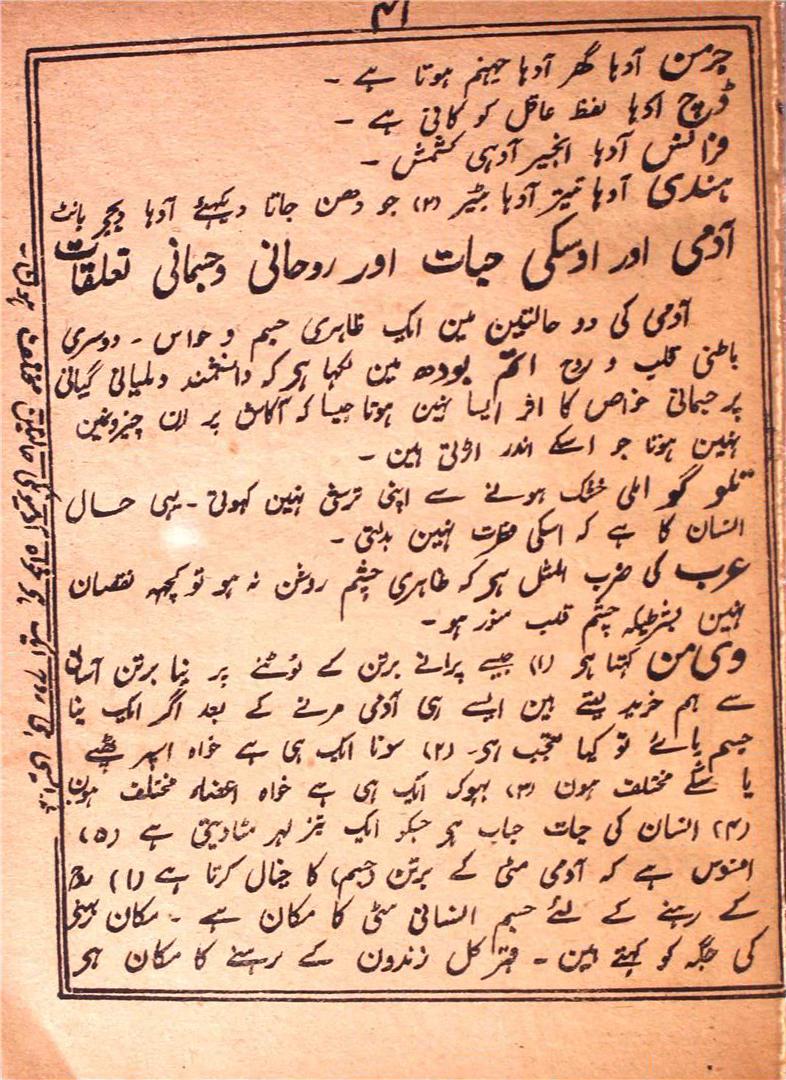 ۴۱
جرمن آدہا گھر آدہا جہنم ہوتا ہے ۔
ڈرچ آدہا لفظ عاقل کو کافی ہے ۔
فرانس آدہا انجیر آدہی کشمش ۔
ہندی آدہا تیتر آدہا بٹیر (۲) جو دھن جاتا دیکہئے آدہا دیجے بانٹ
آدمی اور اوسکی حیات اور روحانی وجسمانی تعلقات
آدمی کی دو حالتین مین ایک ظاہری جسم و حواس ۔ دوسری
باطنی قلب و روح اتم بودھ مین لکہا ہو کہ دانشمند وملیانی گیانی
پر جسمانی خواص کا اثر ایسا نہین ہوتا جیسا کہ آکاش پر ان چیزونمین
نہین ہوتا جو اسکے اندر اڑتی ہین ۔
تلو گو املی خشک ہونے سے اپنی ترشی نہین کہوتی ۔ یہی حال
انسان کا ہے کہ اسکی فطرت نہین بدلتی ۔
عرب کی ضرب المثل ہو کہ ظاہری چشم روغن نہ ہو تو کچہہ نقصان
نہین بشرطیکہ چشم قلب منور ہو ۔
وی من کہتا ہو (۱) جیسے پرانے برتن کے ٹوٹنے پر نیا برتن آسانی
سے ہم خرید لیتے ہین ایسے ہی آدمی مرنے کے بعد اگر ایک نیا
جسم پائے تو کیا تعجب ہی۔ (۲) سونا ایک ہی ہے خواہ اسپر ٹھپے
یا سکے مختلف ہون (۳) بہوک ایک ہی ہے خواہ اعضاء مختلف ہون
(۴) انسان کی حیات حباب ہو جسکو ایک تیز لہر مٹادیتی ہے (۵)
افسوس ہے کہ آدمی مٹی کے برتن (جسم) کا خیال کرتا ہے (۱) روح
کے رہنے کے لئے جسم انسانی مٹی کا مکان ہے ۔ مکان رہنی
کی جگہ کو کہتے ہین ۔ قبر کل زندون کے رہنے کا مکان ہو